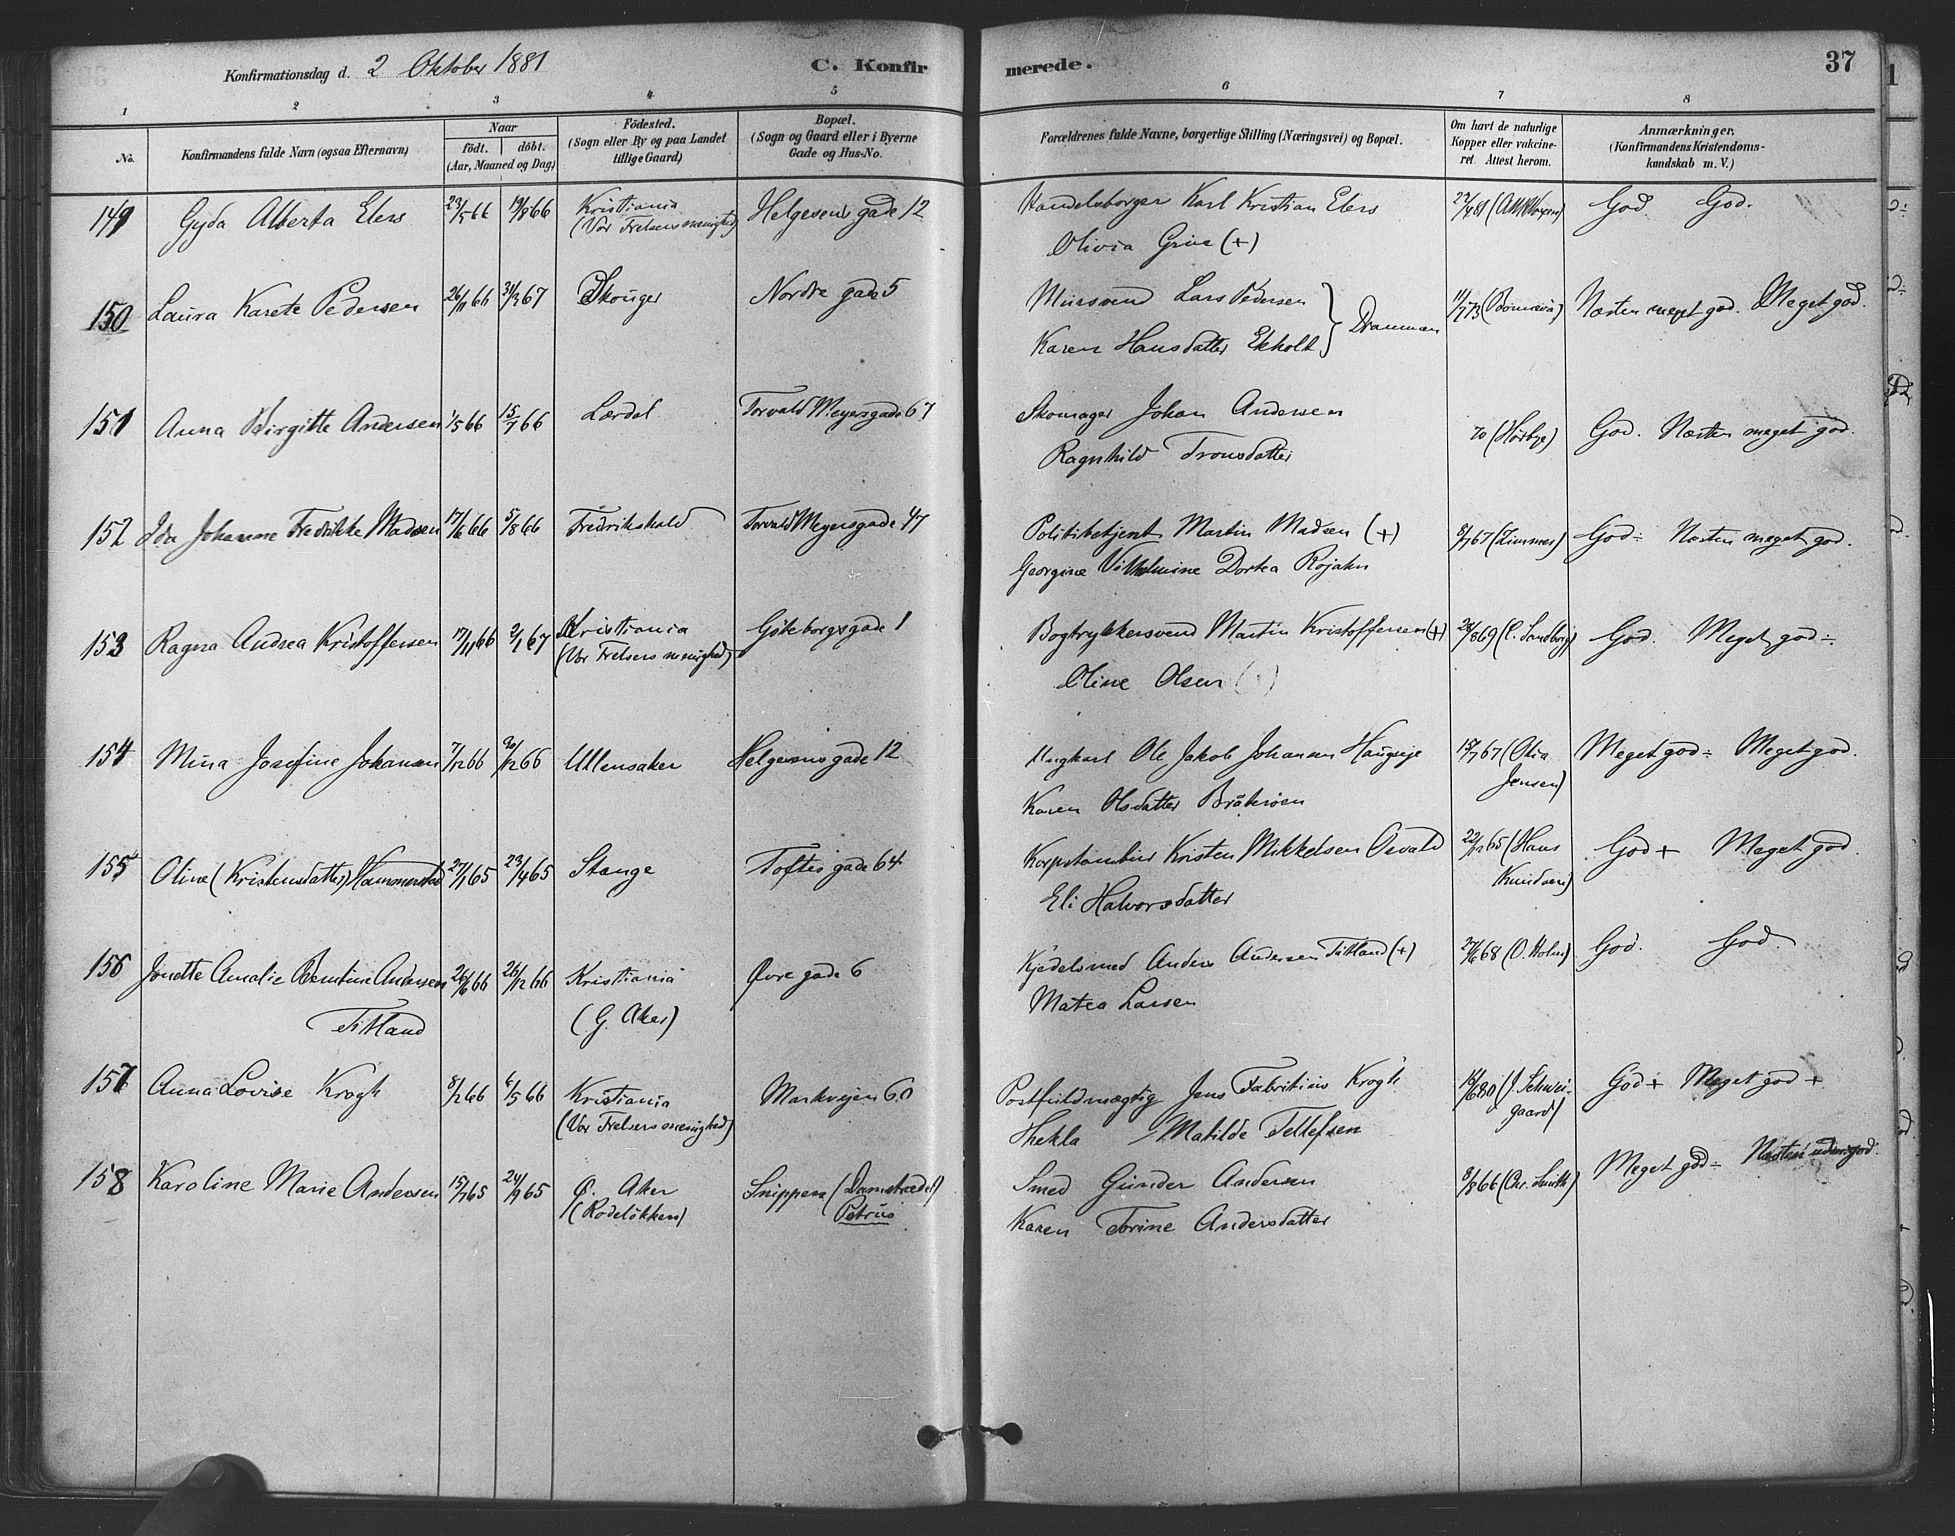 Konfirmationsdag d. 2 Oktober 1881 C. Konfirmerede. 37
1 2 3 4 5 6 7 8
No.
Konfirmandens fulde Navn (ogsaa Efternavn)
Naar
födt. döbt.
(Aar, Maaned og Dag)
Födested.
(Sogn eller By og paa Landet
tillige Gaard)
Bopæl.
(Sogn og Gaard eller i Byerne
Gade og Hus-No.
Forældrenes fulde Navne, borgerlige Stilling (Næringsvei) og Bopæl.
Om havt de naturlige
Kopper eller vakcine-
ret. Attest herom.
Anmærkninger.
(Konfirmandens Kristendoms-
kundskab m. V.)
149 Gyda Alberta Elers 23/5 66 19/8 66 Kristiania Helgesens gade 12 Handelsborger Karl Kristian Elers 22/4 81 God. God.
(Vor Frelsers menighed) Olivia (+)
150 Laura Karete Pedersen 26/11 66 31/3 67 Skouger Nordre gade 5 Mursvend Lars Pedersen 11/7 73 Næsten meget god. Meget god.
Karen Hansdatter Ekholt } Drammen
151 Anna Birgitte Andersen 1/5 66 15/7 66 Lærdal Torvald Meyersgade 67 Skomager Johan Andersen 70 (Hörbye) God. Næsten meget god.
Ragnhild Tronsdatter
152 Ida Johanne Fredrikke Madsen 17/6 66 5/8 66 Fredrikshald Torvald Meyersgade 47 Politibetjent Martin Madsen (+) 8/7 67 (Zimmer) God ÷ Næsten meget god.
Georgine Vilhelmine Dortea Rojahn
153 Ragna Andrea Kristoffersen 17/11 66 2/1 67 Kristiania Göteborgsgade 1 Bogtrykkersvend Martin Kristoffersen (+) 28/8 69 (C. Sandberg) God. Meget god ÷
(Vor Frelsers menighed) Oline Olsen
154 Mina Josefine Johansen 7/12 66 30/12 66 Ullensaker Helgesens gade 12 Ungkarl Ole Jakob Johansen 15/7 67 (Otia Meget god ÷ Meget god.
Karen Olsdatter Bråteröen Jensen)
155 Oline (Kristensdatter) Hammerstad 27/1 65 23/4 65 Stange Toftes gade 64 Korpstambur Kristen Mikkelsen Osvald 22/12 65 (Hans God + Meget god.
Eli Halvorsdatter Knudsen)
156 Jonette Amalie Berntine Andersen 26/6 66 26/12 66 Kristiania Övre gade 6 Kjedelsmed Anders Andersen Titland (+) 27/6 68 (O. Holm) God. God.
Titland (G. Aker) Matea Larsen
157 Anna Lovise Krogh 8/2 66 6/5 66 Kristiania Markvejen 60 Postfuldmægtig Jens Fabritius Krogh 16/6 80 (J. Schwei- God + Meget god +
(Vor Frelsers menighed) Thekla Matilde Tellefsen gaard)
158 Karoline Marie Andersen 15/7 65 24/9 65 Ö. Aker Snippen (Damstrædet) Smed Gunder Andersen 8/8 66 (Chr. Smith) Meget god ÷ Næsten udm. god.
(Rodelökken) Petrus Karen Torine Andersdatter